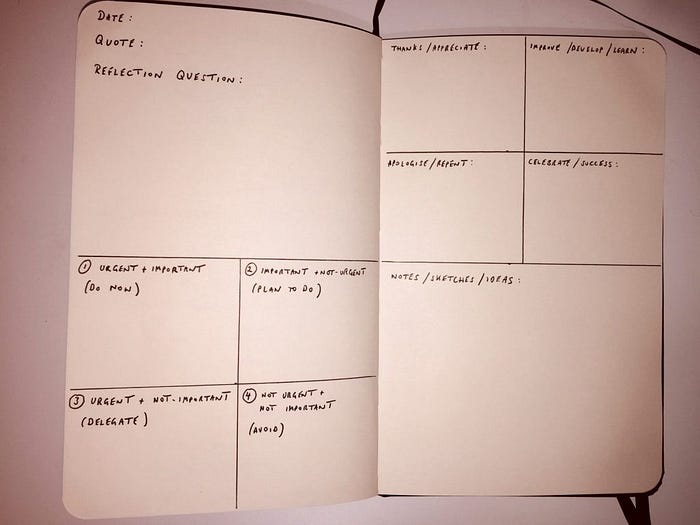 DATE :
QUOTE :
REFLECTION QUESTION :
① URGENT + IMPORTANT
(DO NOW)
② IMPORTANT + NOT-URGENT
(PLAN TO DO)
③ URGENT + NOT-IMPORTANT
(DELEGATE)
④ NOT URGENT +
NOT IMPORTANT
(AVOID)
THANKS / APPRECIATE :
IMPROVE / DEVELOP / LEARN :
APOLOGISE / REPENT :
CELEBRATE / SUCCESS :
NOTES / SKETCHES / IDEAS :